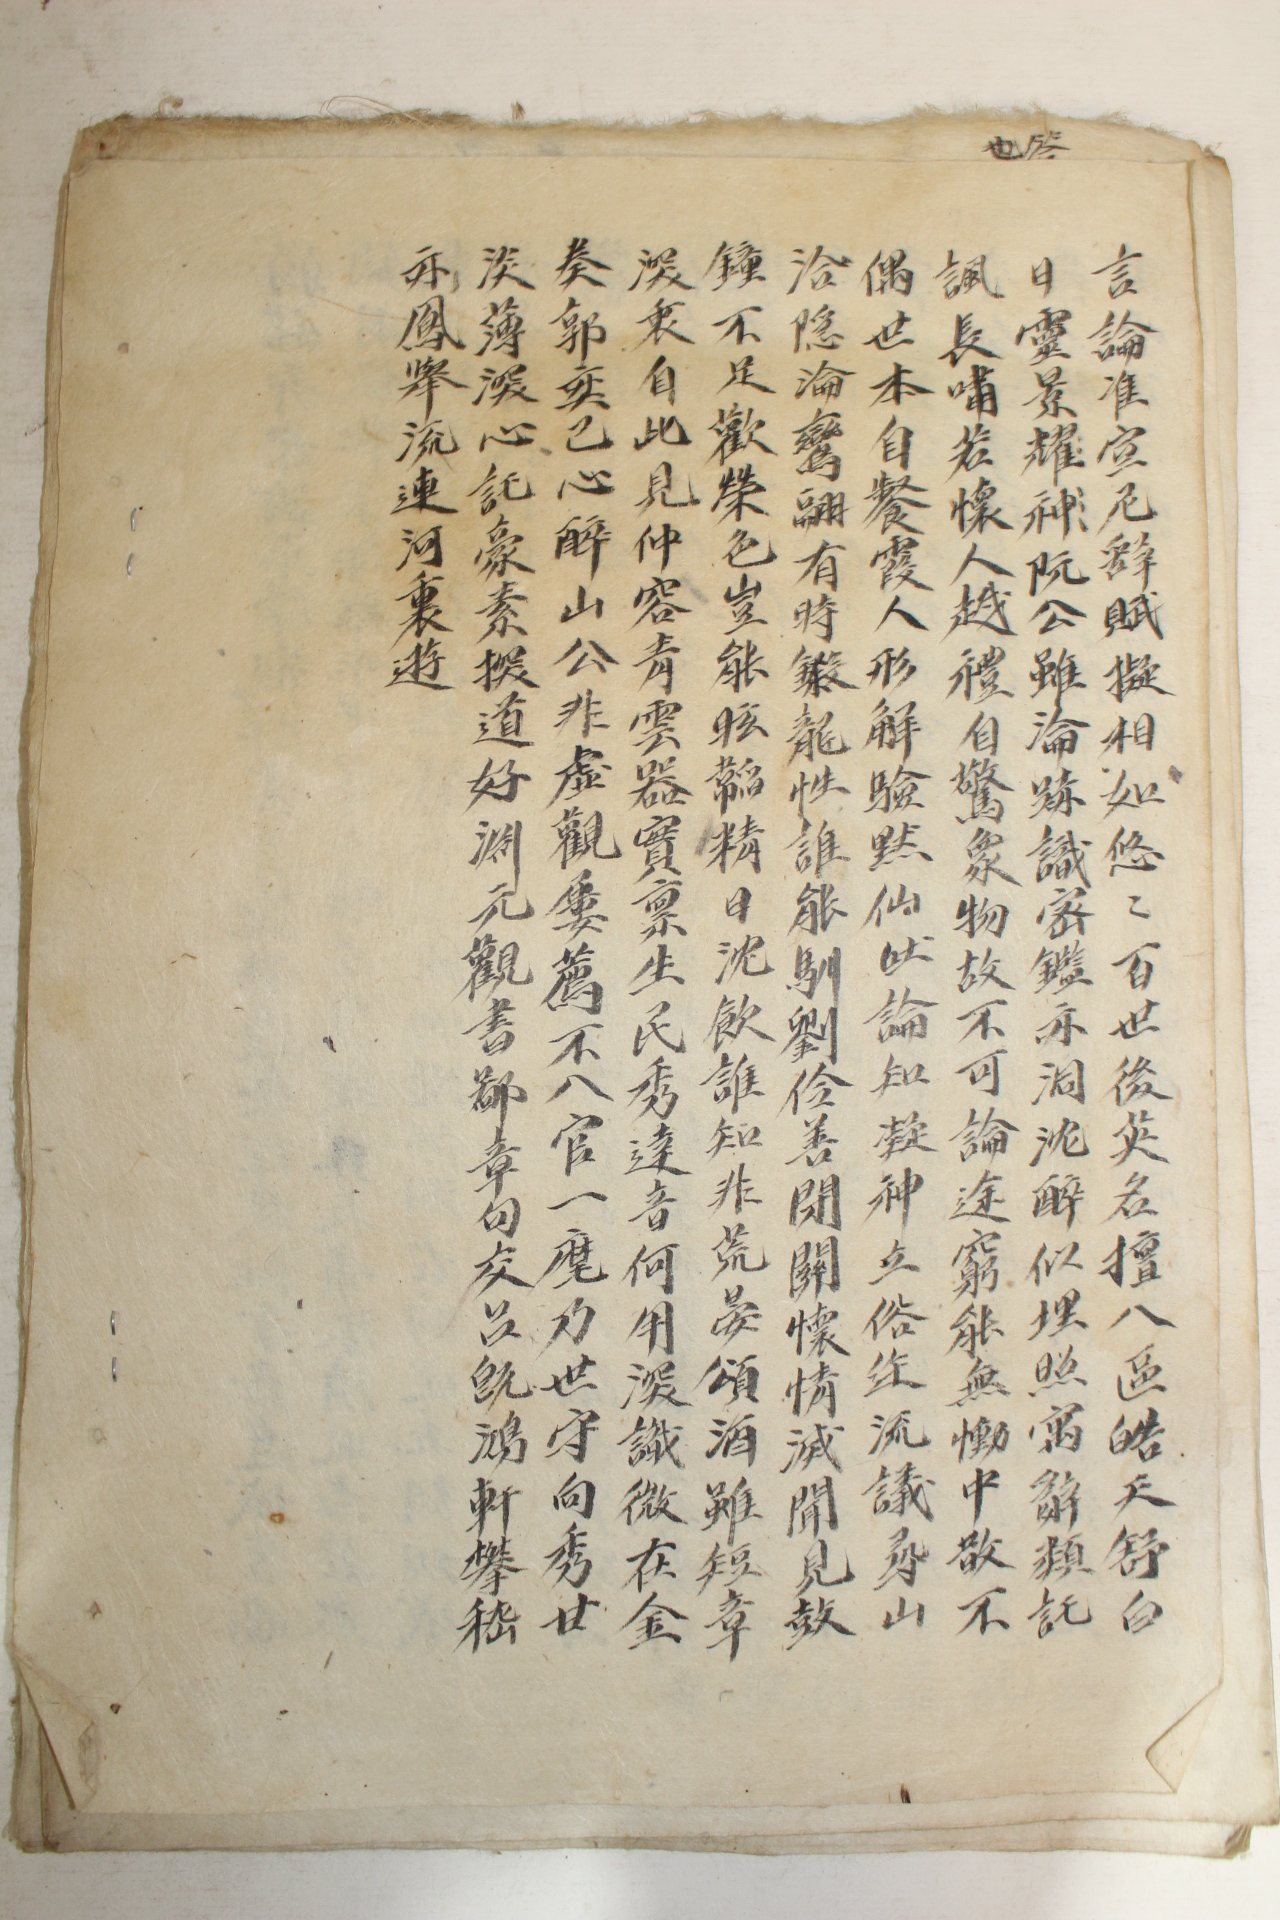 言論准宣尼辭賦擬相如悠〻百世後英名擅八區皓天舒白
日靈景耀神阮公雖淪跡識密鑑亦洞沈醉似埋照寓辭類託
諷長嘯若懷人越禮自驚眾物故不可論途窮能無慟中散不
偶世本自餐霞人形解驗默仙吐論知凝神立俗迕流議尋山
洽隱淪鸞翮有時鎩龍性誰能馴劉伶善閉關懷情滅聞見鼓
鐘不足歡榮色豈能眩韜精日沈飲誰知非荒宴頌酒雖短章
深衷自此見仲容青雲器實稟生民秀達音何用深識微在金
奏郭奕已心醉山公非虛觀屢薦不八官一麾乃世守向秀廿
淡薄深心託豪素探道好淵元觀書鄙章句交呂既鴻軒攀嵇
亦鳳舉流連河裏遊